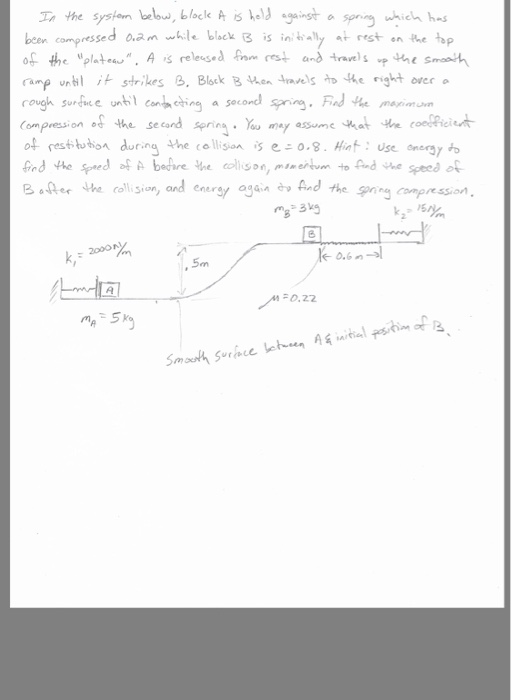 In the system below, block A is held against a spring which has
been compressed 0.2m while block B is initially at rest on the top
of the "plateau". A is released from rest and travels up the smooth
ramp until it strikes B. Block B then travels to the right over a
rough surface until contacting a second spring. Find the maximum
compression of the second spring. You may assume that the coefficient
of restitution during the collision is e = 0.8. Hint: Use energy to
find the speed of A before the collison, momentum to find the speed of
B after the collision, and energy again to find the spring compression.
m_B = 3kg
k₂ = 15 N/m
B
k₁ = 2000 N/m
.5m
0.6m
A
μ = 0.22
m_A = 5kg
Smooth surface between A & initial position of B.